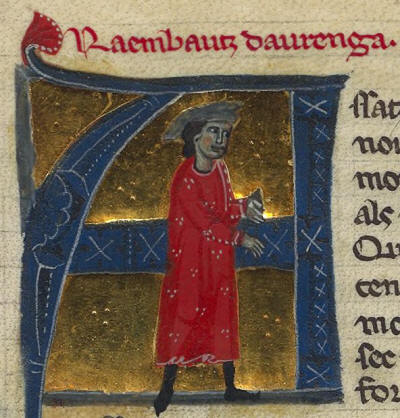 Raembautz daurenga.
ssat
nou
mo
als
Qu
cen
me
sec
for